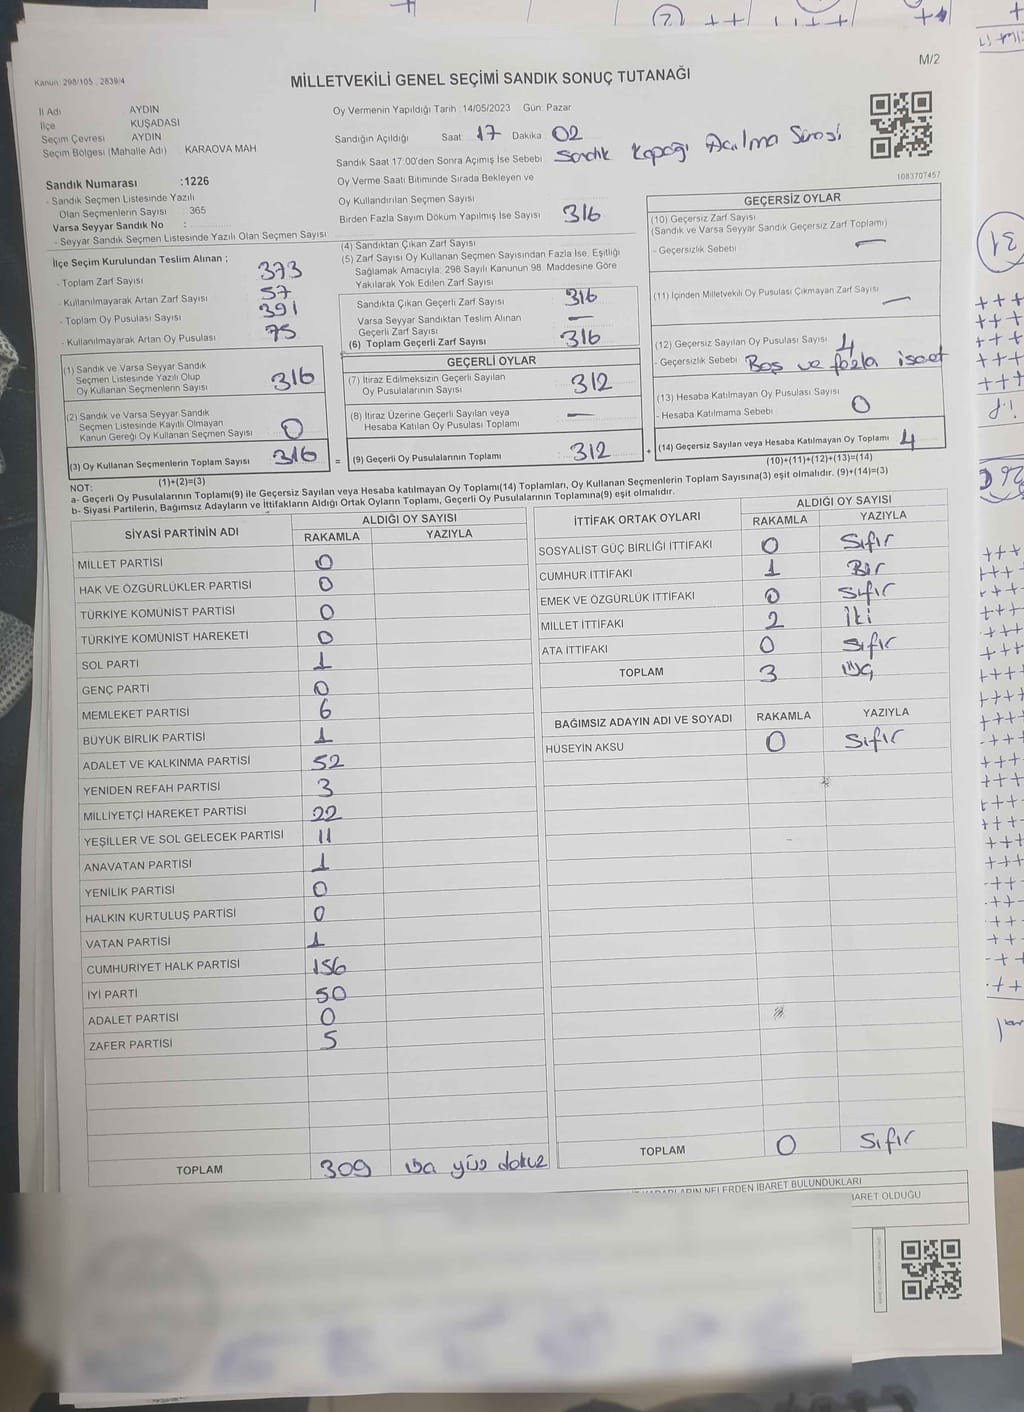 M/2
Kanun: 298/105 , 2839/4
MİLLETVEKİLİ GENEL SEÇİMİ SANDIK SONUÇ TUTANAĞI
İl Adı AYDIN
İlçe KUŞADASI
Seçim Çevresi AYDIN
Seçim Bölgesi (Mahalle Adı) KARAOVA MAH
Oy Vermenin Yapıldığı Tarih :14/05/2023 Gün: Pazar
Sandığın Açıldığı Saat: 17 Dakika 02
Sandık Saat 17:00'den Sonra Açımış İse Sebebi Sandık Kapağı Açılma Süresi
Oy Verme Saati Bitiminde Sırada Bekleyen ve
Oy Kullandırılan Seçmen Sayısı
Birden Fazla Sayım Döküm Yapılmış İse Sayısı 316
1083707457
Sandık Numarası :1226
- Sandık Seçmen Listesinde Yazılı
Olan Seçmenlerin Sayısı : 365
Varsa Seyyar Sandık No :
- Seyyar Sandık Seçmen Listesinde Yazılı Olan Seçmen Sayısı:
İlçe Seçim Kurulundan Teslim Alınan ;
- Toplam Zarf Sayısı 373
- Kullanılmayarak Artan Zarf Sayısı 57
- Toplam Oy Pusulası Sayısı 391
- Kullanılmayarak Artan Oy Pusulası 75
(1) Sandık ve Varsa Seyyar Sandık
Seçmen Listesinde Yazılı Olup
Oy Kullanan Seçmenlerin Sayısı 316
(2) Sandık ve Varsa Seyyar Sandık
Seçmen Listesinde Kayıtlı Olmayan
Kanun Gereği Oy Kullanan Seçmen Sayısı 0
(3) Oy Kullanan Seçmenlerin Toplam Sayısı 316
(1)+(2)=(3)
(4) Sandıktan Çıkan Zarf Sayısı
(5) Zarf Sayısı Oy Kullanan Seçmen Sayısından Fazla İse, Eşitliği
Sağlamak Amacıyla; 298 Sayılı Kanunun 98. Maddesine Göre
Yakılarak Yok Edilen Zarf Sayısı
Sandıkta Çıkan Geçerli Zarf Sayısı 316
Varsa Seyyar Sandıktan Teslim Alınan
Geçerli Zarf Sayısı —
(6) Toplam Geçerli Zarf Sayısı 316
GEÇERLİ OYLAR
(7) İtiraz Edilmeksizin Geçerli Sayılan
Oy Pusulalarının Sayısı 312
(8) İtiraz Üzerine Geçerli Sayılan veya
Hesaba Katılan Oy Pusulası Toplamı —
= (9) Geçerli Oy Pusulalarının Toplamı 312 +
GEÇERSİZ OYLAR
(10) Geçersiz Zarf Sayısı
(Sandık ve Varsa Seyyar Sandık Geçersiz Zarf Toplamı)
- Geçersizlik Sebebi —
(11) İçinden Milletvekili Oy Pusulası Çıkmayan Zarf Sayısı —
(12) Geçersiz Sayılan Oy Pusulası Sayısı 4
- Geçersizlik Sebebi Boş ve fazla isaet
(13) Hesaba Katılmayan Oy Pusulası Sayısı
- Hesaba Katılmama Sebebi 0
(14) Geçersiz Sayılan veya Hesaba Katılmayan Oy Toplamı 4
(10)+(11)+(12)+(13)=(14)
NOT:
a- Geçerli Oy Pusulalarının Toplamı(9) ile Geçersiz Sayılan veya Hesaba katılmayan Oy Toplamı(14) Toplamları, Oy Kullanan Seçmenlerin Toplam Sayısına(3) eşit olmalıdır. (9)+(14)=(3)
b- Siyasi Partilerin, Bağımsız Adayların ve İttifakların Aldığı Ortak Oyların Toplamı, Geçerli Oy Pusulalarının Toplamına(9) eşit olmalıdır.
SİYASİ PARTİNİN ADI ALDIĞI OY SAYISI
RAKAMLA YAZIYLA
MİLLET PARTİSİ 0
HAK VE ÖZGÜRLÜKLER PARTİSİ 0
TÜRKİYE KOMÜNİST PARTİSİ 0
TÜRKİYE KOMÜNİST HAREKETİ 0
SOL PARTİ 1
GENÇ PARTİ 0
MEMLEKET PARTİSİ 6
BÜYÜK BİRLİK PARTİSİ 1
ADALET VE KALKINMA PARTİSİ 52
YENİDEN REFAH PARTİSİ 3
MİLLİYETÇİ HAREKET PARTİSİ 22
YEŞİLLER VE SOL GELECEK PARTİSİ 11
ANAVATAN PARTİSİ 1
YENİLİK PARTİSİ 0
HALKIN KURTULUŞ PARTİSİ 0
VATAN PARTİSİ 1
CUMHURİYET HALK PARTİSİ 156
İYİ PARTİ 50
ADALET PARTİSİ 0
ZAFER PARTİSİ 5
TOPLAM 309 yüz dokuz
İTTİFAK ORTAK OYLARI ALDIĞI OY SAYISI
RAKAMLA YAZIYLA
SOSYALİST GÜÇ BİRLİĞİ İTTİFAKI 0 Sıfır
CUMHUR İTTİFAKI 1 Bir
EMEK VE ÖZGÜRLÜK İTTİFAKI 0 Sıfır
MİLLET İTTİFAKI 2 İki
ATA İTTİFAKI 0 Sıfır
TOPLAM 3 üç
BAĞIMSIZ ADAYIN ADI VE SOYADI RAKAMLA YAZIYLA
HÜSEYİN AKSU 0 Sıfır
TOPLAM 0 Sıfır
NELERDEN İBARET BULUNDUKLARI
İBARET OLDUĞU
31